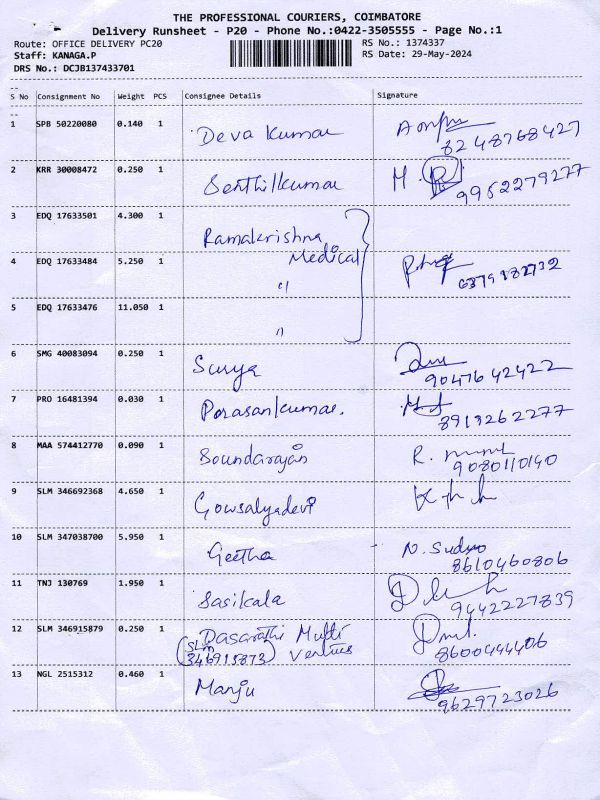 THE PROFESSIONAL COURIERS, COIMBATORE
Delivery Runsheet - P20 - Phone No.:0422-3505555 - Page No.:1
Route: OFFICE DELIVERY PC20 RS No.: 1374337
Staff: KANAGA.P RS Date: 29-May-2024
DRS No.: DCJB137433701
S No Consignment No Weight PCS Consignee Details Signature
1 SPB 50220080 0.140 1 Deva Kumar
8248768427
2 KRR 30008472 0.250 1 Senthilkumar M.
9952279277
3 EDQ 17633501 4.300 1 Ramakrishna
Medical
4 EDQ 17633484 5.250 1 "
6379182732
5 EDQ 17633476 11.050 1 "
6 SMG 40083094 0.250 1 Surya
9047642422
7 PRO 16481394 0.030 1 Porasankumar.
8913262277
8 MAA 574412770 0.090 1 Soundarajan R.
9080110140
9 SLM 346692368 4.650 1 Gowsalyadevi
10 SLM 347038700 5.950 1 Geetha N.
8610460806
11 TNJ 130769 1.950 1 Sasikala
9442227839
12 SLM 346915879 0.250 1 Dasarathi Multi
(SLM 346915873) 8600444406
13 NGL 2515312 0.460 1 Manju
9629723026